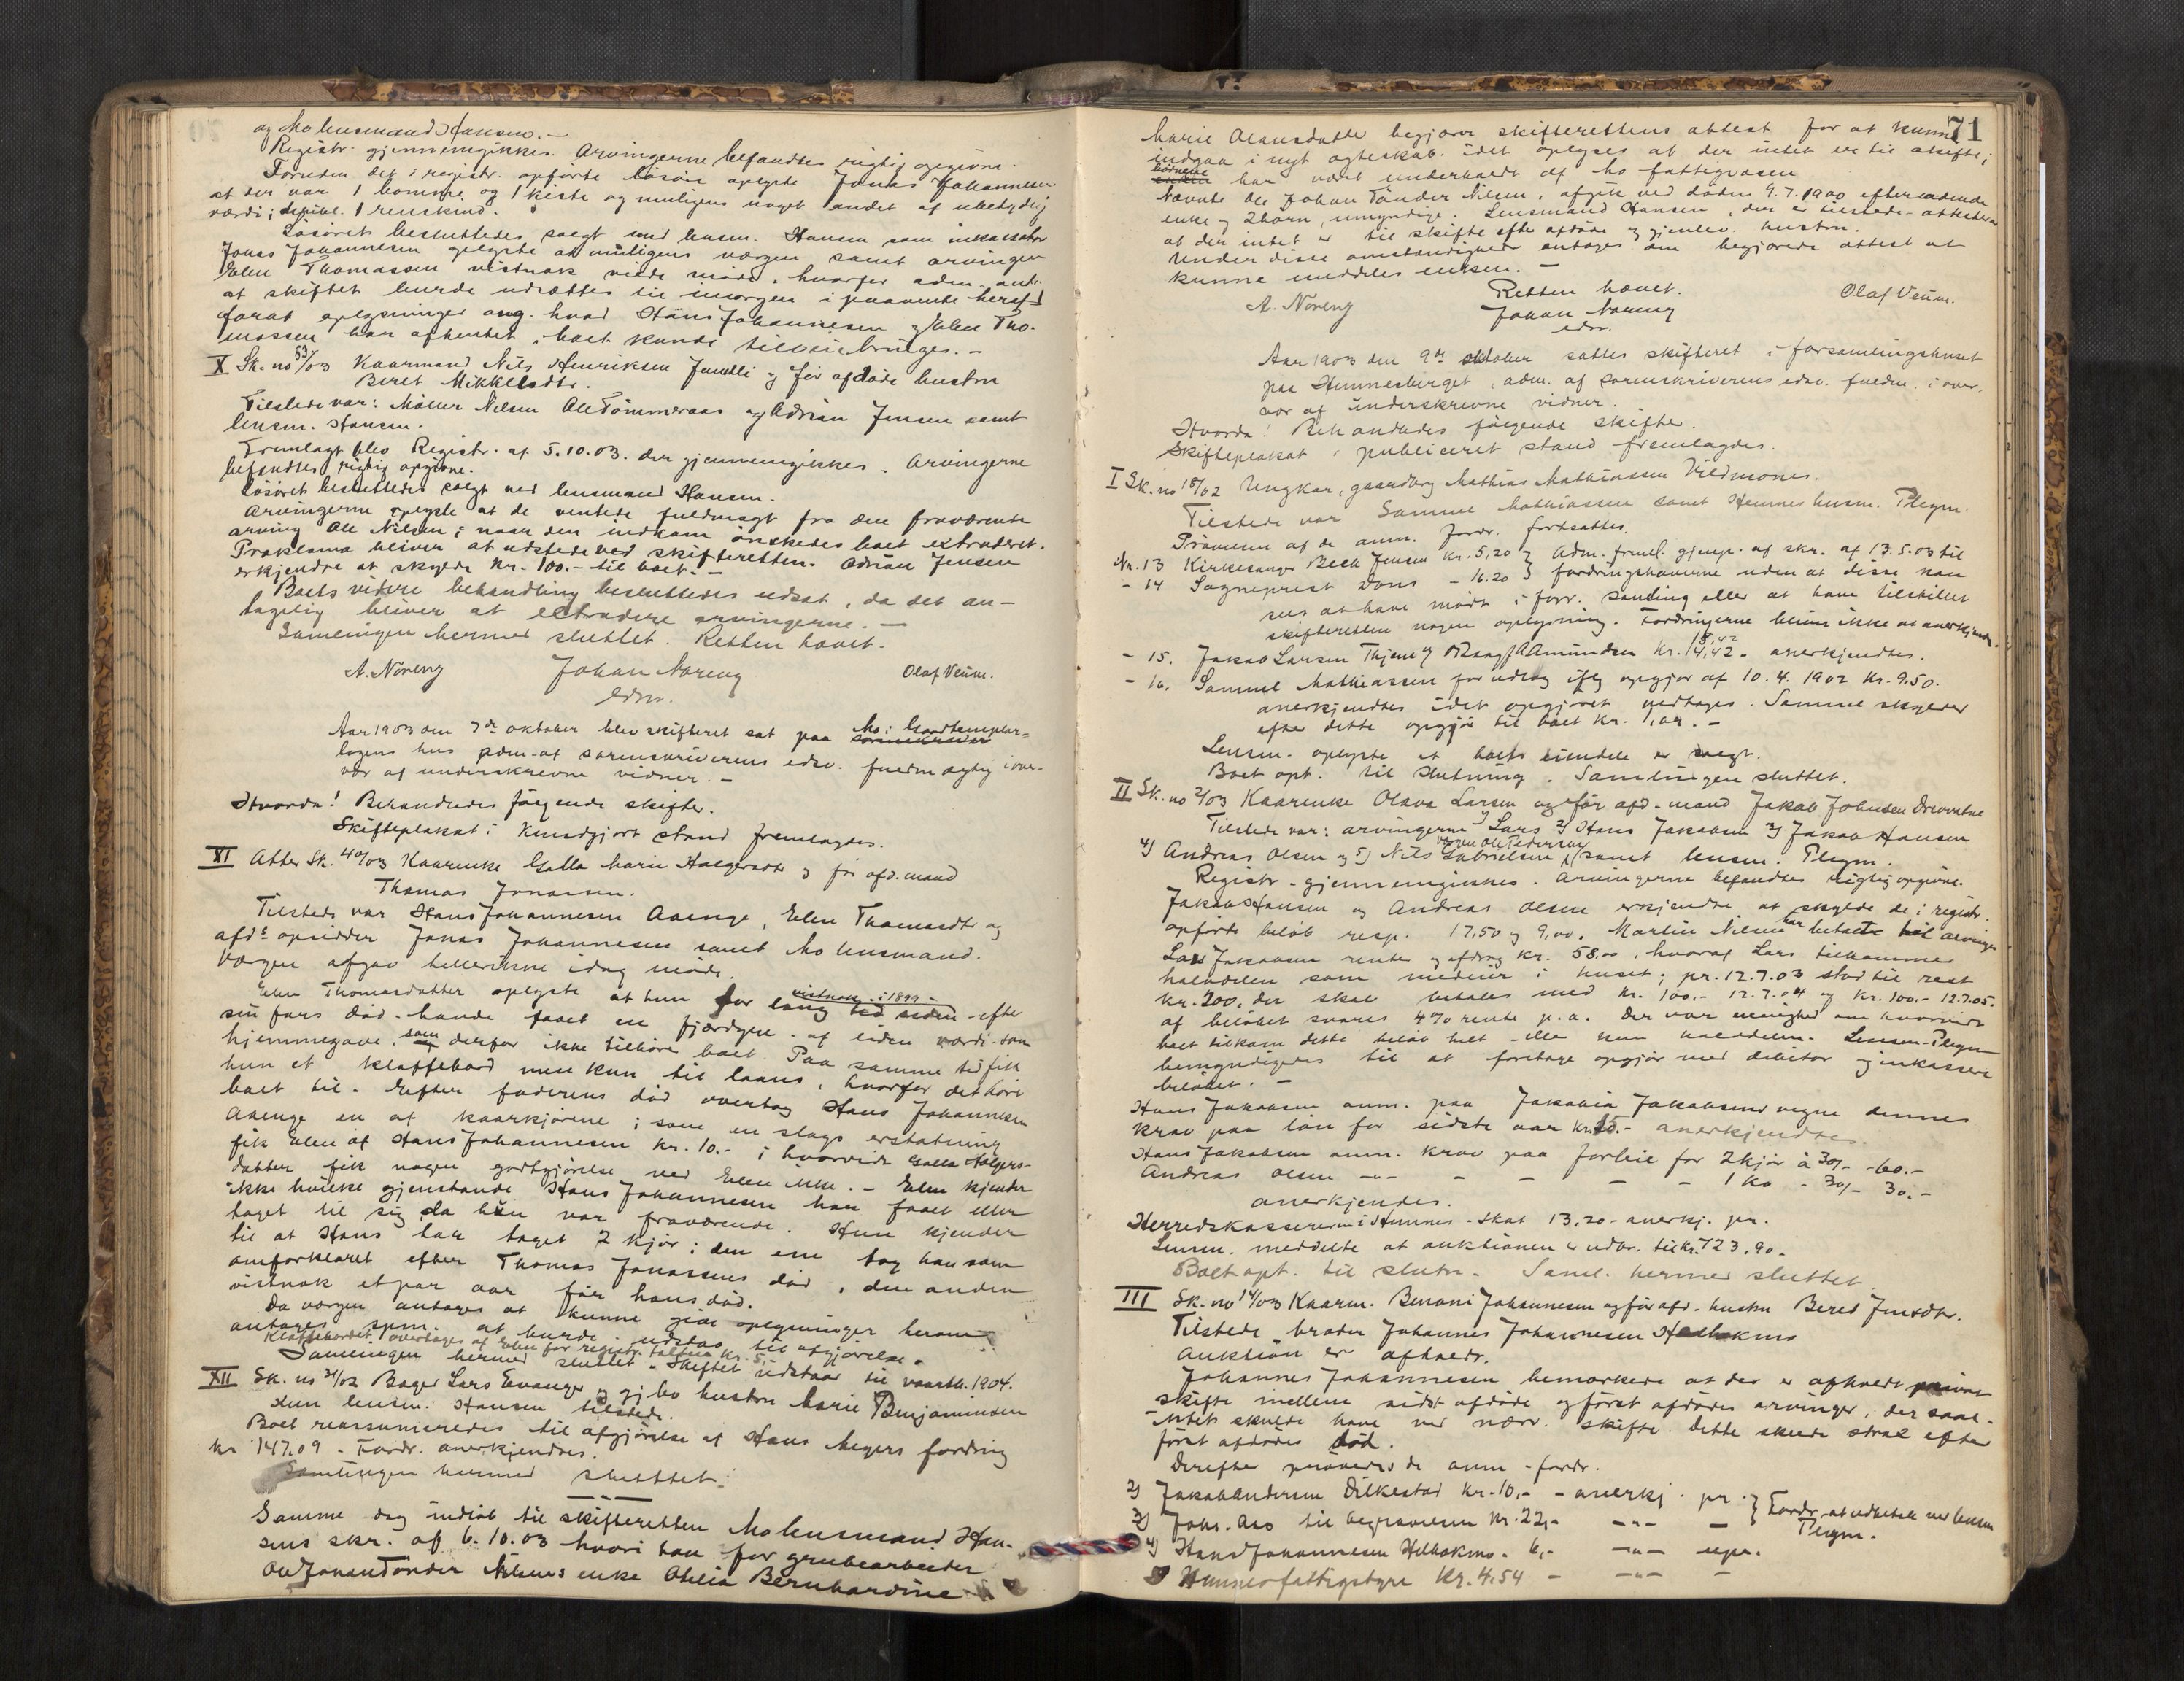 og Mo lensmand Hansen.-
Registr. gjennemgikkes. Arvingerne befandtes rigtig opgivne.
Foruden det i registr. opførte løsøre oplyste Jonas Johannesen
at der var 1 komme og 1 kiste og muligens noget andet af ubetydelig
værdi; 1 renskind.
Løsøret besluttedes solgt ved lensm. Hansen som inkassator
Jonas Johannesen oplyste at muligens værgen samt arvingen
Elen Thomassen vistnok vilde møde, hvorfor adm. antr.
at skiftet burde udsættes til imorgen i paavente heraf
forat oplysninger ang. hvad Hans Johannesen og Elen Tho-
massen har afhentet, boet kunde tilveiebringes.-
X Sk. no 53/03 Kaarmand Nils Henriksen og før afdøde hustru
Beret Mikkelsdtr.
Tilstede var: Møller Nilsen Ole Tømmeraas og Adrian Jensen samt
lensm. Hansen.
Fremlagt blev Registr. af 5.10.03. der gjennemgikkes. Arvingerne
befandtes rigtig opgivne.
Løsøret besluttedes solgt ved lensmand Hansen.
Arvingerne oplyste at de ventede fuldmagt fra den fraværende
arving Ole Nilsen; naar den indkom ønskedes boet extraderet.
Proklama bliver at udstede ved skifteretten. Adrian Jensen
erkjendte at skylde kr. 100.- til boet.-
Boets videre behandling besluttedes udsat, da det an-
tagelig bliver at extradere arvingerne.-
Samlingen hermed sluttet. Retten hævet.
A. Noreng Johan Noreng Olaf Veum.
edsv.
Aar 1903 den 7de oktober blev skifteret sat paa Mo i Goodtemplar-
logens hus adm. af sorenskriverens edsv. fuldmægtig i over-
vær af underskrevne vidner.-
Hvorda! Behandledes følgende skifter.
Skifteplakat i kundgjort stand fremlagdes.
XI Atter Sk. 40/03 Kaarenke Golla Marie Holgersdtr og før afd. mand
Thomas Jonassen.
Tilstede var Hans Johannesen Avenge, Elen Thomasdtr og
afd's opsidder Jonas Johannesen samt Mo lensmand.
Værgen afgav hellerikke idag møde.
Elen Thomasdatter oplyste at hun for lang tid siden vistnok i 1899 - efter
sin fars død - havde faaet en fjærdyne af liden værdi - som
hjemmegave, som derfor ikke tilhøre boet. Paa samme tid fik
hun et klaffebord men kun til laans, hvorfor det hører
boet til. Efter faderens død overtog Hans Johannesen
Avenge en af kaarkjørene; som en slags erstatning
fik Elen af Hans Johannesen kr. 10.-; hvorvidt Golla Holgers-
datter fik nogen godtgjørelse ved Elen ikke.- Elen kjender
ikke hvilke gjenstande Hans Johannesen har faaet eller
taget til sig da hun var fraværende. Hun kjender
til at Hans har taget 2 kjør; den ene tog han som
omforklaret efter Thomas Jonassens død, den anden
vistnok et par aar før hans død.
Da værgen antages at kunne give oplysninger herom
antages spm. at burde udstaa til afgjørelse.
Klaffebordet overtages af Elen for registr. takten kr. 5,-
Samlingen hermed sluttet. Skiftet udstaar til vaarth. 1904.
XII Sk. no 31/02 Bager Lars Evanger og gj.lev. hustru Marie Benjaminsen
Kun lensm. Hansen tilstede.
Boet reassumeredes til afgjørelse af Hans Meyers fordring
kr 147.09 - Fordr. anerkjendtes.
Samlingen hermed sluttet.
Samme dag indløb til skifteretten Mo lensmand Han-
sens skr. af 6.10.03 hvori han for grubearbeider
Ole Johan Tønder Nilsens enke Otelia Bernhardine
71
Marie Olausdatter begjærer skifterettens attest for at kunne
indgaa i nyt ægteskab idet oplyses at der intet er til skifte;
børnene enken har været underholdt af Mo fattigvæsen
Nævnte Ole Johan Tønder Nilsen, afgik ved døden 9.7.1900 efterladende
enke og 2 børn, umyndige. Lensmand Hansen, der er tilstede - attesterer
at der intet er til skifte efter afdøde og gjenlev. hustru.
Under disse omstændigheder antages den begjærede attest at
kunne meddeles enken.-
Retten hævet.
A. Noreng Johan Noreng Olaf Veum.
edsv.
Aar 1903 den 9de oktober sattes skifteret i forsamlingshuset
paa Hemnesberget, adm. af sorenskriverens edsv. fuldm. i over-
vær af underskrevne vidner.
Hvorda! Behandledes følgende skifte.
Skifteplakat i publiceret stand fremlagdes.
I Sk. no 18/02 Ungkar, gaardbrg Mathias Mathiassen Vildmones.
Tilstede var Samuel Mathiassen samt Hemnes lensm. Plegm.
Prøvelsen af de anm. fordr. fortsattes.
No. 13 Kirkesanger Bech Jensen kr. 5,20 } Adm. freml. gjenp. af skr. af 13.5.03 til
- 14 Sogneprest Dons - 16.20 } fordringshaverne uden at disse kan
sees at have mødt i forr. samling eller at have tilstillet
skifteretten nogen oplysning. Fordringerne bliver ikke at anerkjende.
- 15. Jakob Larsen Thjene og Amundsen kr. 14,42 - anerkjendtes.
- 16. Samuel Mathiassen for udlæg iflg opgjør af 10.4.1902 kr. 9.50.
anerkjendtes idet opgjøret vedtages. Samuel skylder
efter dette opgjør til boet kr. 1,02.-
Lensm. oplyste at boets eiendele er solgt.
Boet opt. til slutning. Samlingen sluttet.
II Sk. no 2/03 Kaarenke Olava Larsen og før afd. mand Jakob Johnsen
Tilstede var: arvingerne 1) Lars 2) Hans Jakobsen 3) Jakob Hansen
4) Andreas Olsen og 5) Nils Gabrielsen ved Ole Pedersen samt lensm. Plegm.
Registr. gjennemgikkes. Arvingerne befandtes rigtig opgivne.
Jakob Hansen og Andreas Olsen erkjendte at skylde de i registr.
opførte beløb resp. 17,50 og 9,00. Martin Nilsen har betalt til arvingen
Lars Jakobsen renter og afdrag kr. 58,00, hvoraf Lars tilkommer
halvdelen som medeier i huset; pr. 12.7.03 stod til rest
kr. 200, der skal betales med kr. 100.- 12.7.04 og kr. 100.- 12.7.05.
af beløbet svares 4% rente p.a. Der var uenighed om hvorvidt
boet tilkom dette beløb helt - eller kun halvdelen. Lensm. Plegm
bemyndigedes til at foretage opgjør med debitor og inkassere
beløbet.-
Hans Jakobsen anm. paa Jakobia Jakobsens vegne dennes
krav paa løn for sidste aar kr. - anerkjendtes.
Hans Jakobsen anm. krav paa forleie for 2 kjør à 30/- - 60.-
Andreas Olsen -"- - - - - 1 ko - 30/- 30.-
anerkjendes.
Herredskassereren i Hemnes - skat 13,20 - anerkj. pr.
Lensm. meddelte at auktionen er udbr. til kr. 723.90.
Boet opt. til slutn. Saml. hermed sluttet.
III Sk. no 14/03 Kaarm. Benoni Johannesen og før afd. hustru Beret Jensdtr.
Tilstede broder Johannes Johannesen
Auktion er afholdt.
Johannes Johannesen bemærkede at der er afholdt privat
skifte mellem sidst afdøde og først afdødes arvinger, der saal.
intet skulde have ved nærv. skifte. Dette skede strax efter
først afdødes død.
Derefter prøvedes de anm. fordr.
2) Jakob Andersen Dilkestad kr. 10,- - anerkj. pr. } Fordr. at udbetale ved lensm
3) Johs. Aas til begravelsen kr. 22,- -"- - Plegm.
4) Hans Johannesen Helbakmo - 6,- -"- upr.
Hemnes fattigstyre kr. 4.54 - -"- -